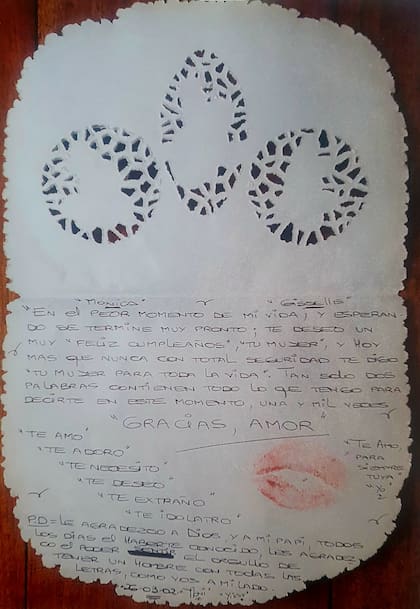 "MONICA" "GISSELLE"
"EN EL PEOR MOMENTO DE MI VIDA, Y ESPERAN
DO SE TERMINE MUY PRONTO; TE DESEO UN
MUY "FELIZ CUMPLEAÑOS", "TU MUJER", Y HOY
MAS QUE NUNCA CON TOTAL SEGURIDAD TE DIGO
"TU MUJER PARA TODA LA VIDA". TAN SOLO DOS
PALABRAS CONTIENEN TODO LO QUE TENGO PARA
DECIRTE EN ESTE MOMENTO, UNA Y MIL VECES
"GRACIAS, AMOR"
"TE AMO"
"TE ADORO"
"TE NECESITO"
"TE DESEO"
"TE EXTRAÑO"
"TE IDOLATRO"
"TE AMO,
PARA
SIEMPRE
TUYA"
"YO"
P.D = LE AGRADEZCO A DIOS, Y A MI PAPI, TODOS
LOS DIAS EL HABERTE CONOCIDO, LES AGRADEZ
CO EL PODER EL ORGULLO DE
TENER UN HOMBRE CON TODAS LAS
LETRAS, COMO VOS A MI LADO